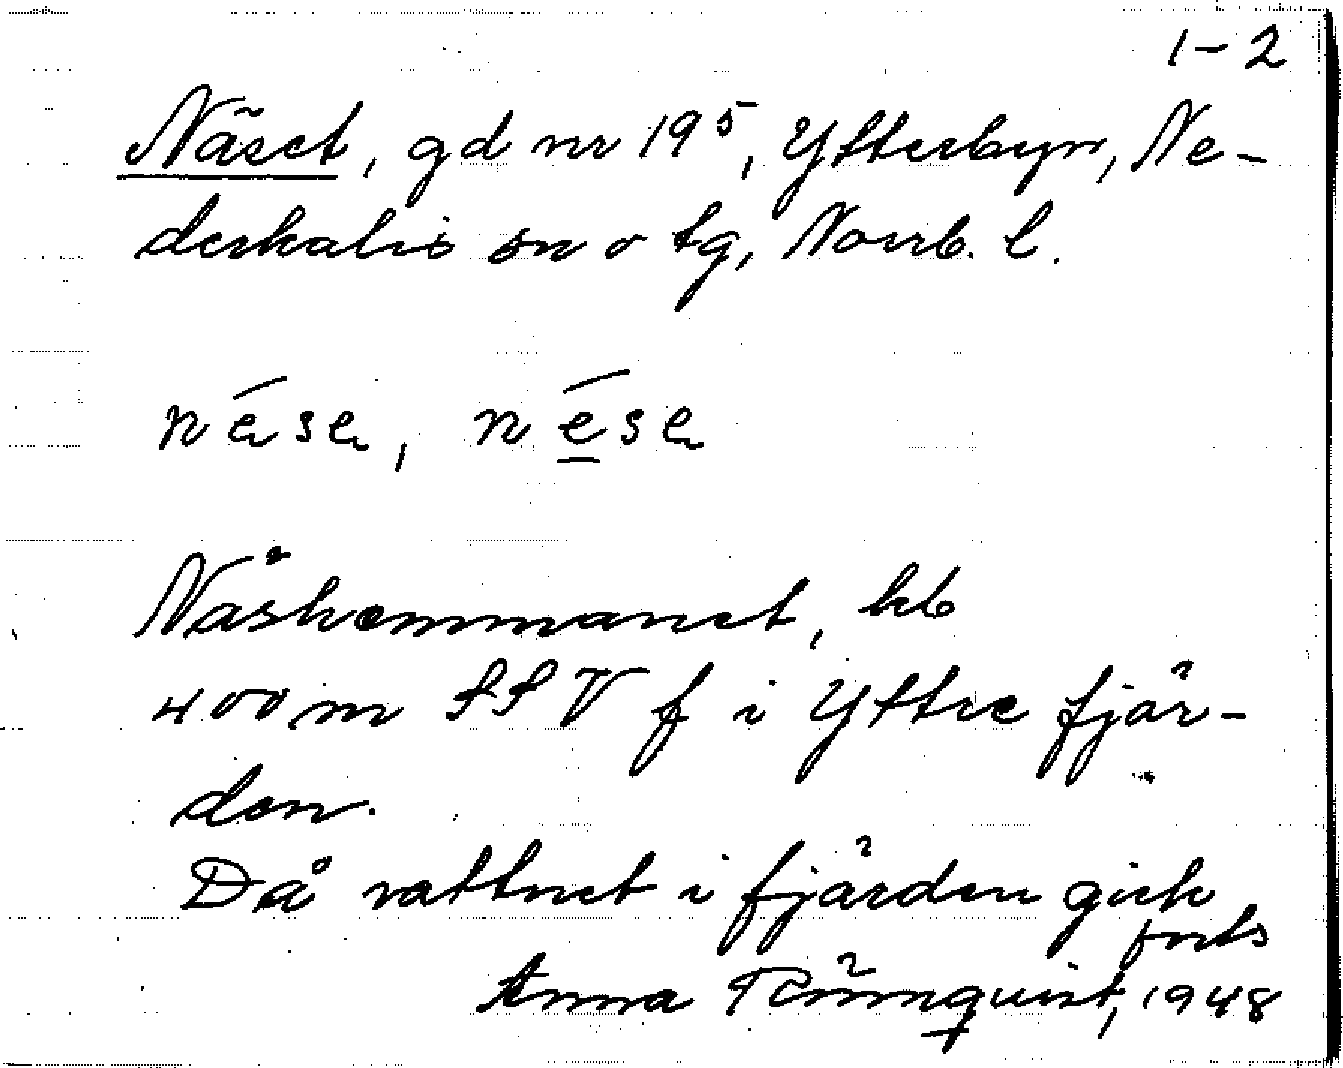 1-2
Näset, gd nr 19⁵, Ytterbyn, Ne-
derkalix sn o tg, Norrb. l.
Näshemmanet, kb
400 m SSV f i Yttre fjär-
den.
Då vattnet i fjärden gick
forts
Anna 1948